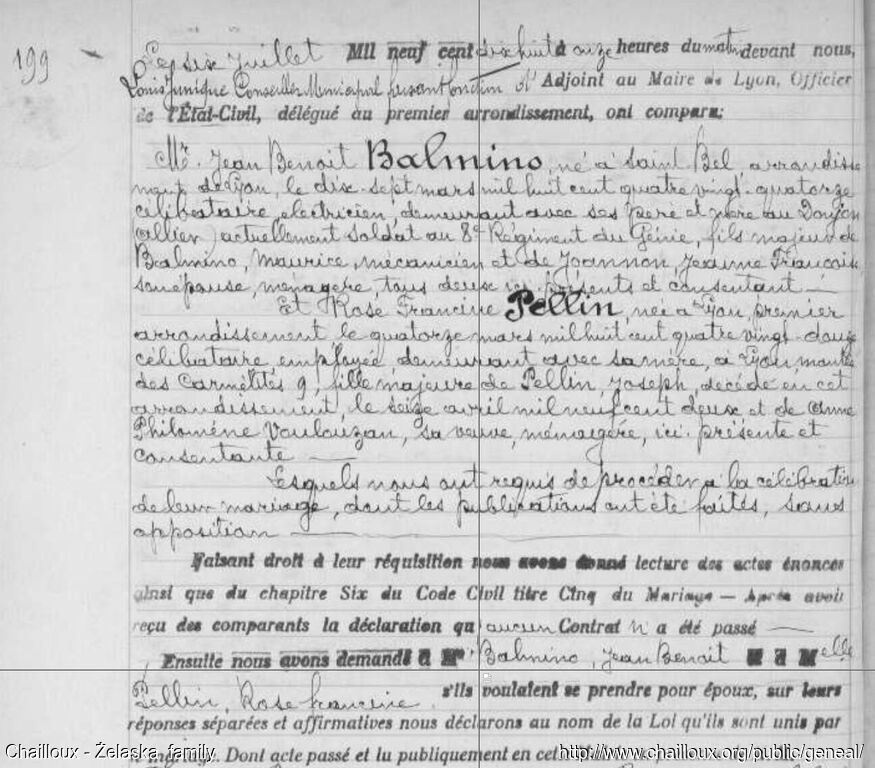 199
Le six Juillet Mil neuf cent dix huit à onze heures du matin devant nous,
Louis Conseiller Municipal faisant fonction d'Adjoint au Maire de Lyon, Officier
de l'État-Civil, délégué au premier arrondissement, ont comparu:
Mr. Jean Benoit Balmino, né à Saint Bel, arrondisse
ment de Lyon, le dix-sept mars mil huit cent quatre vingt-quatorze
célibataire, electricien, demeurant avec ses père et mère au Donjon
(Allier) actuellement soldat au 8e Régiment du Génie, fils majeur de
Balmino, Maurice, mécanicien et de Joannon, Jeanne Francoise
son épouse, ménagère, tous deux ici présents et consentant —
Et Rose Francine Pellin, née à Lyon, premier
arrondissement le quatorze mars mil huit cent quatre vingt-douze
célibataire, employée demeurant avec sa mère, à Lyon, montée
des Carmélites 9, fille majeure de Pellin, Joseph, décédé en cet
arrondissement, le seize avril mil neuf cent deux et de Anne
Philomène Voulouzan, sa veuve, ménagère, ici présente et
consentante —
Lesquels nous ont requis de procéder à la célébration
de leur mariage, dont les publications ont été faites, sans
opposition —
Faisant droit à leur réquisition nous avons donné lecture des actes énoncés
ainsi que du chapitre Six du Code Civil titre Cinq du Mariage — Après avoir
reçu des comparants la déclaration qu'aucun Contrat n'a été passé —
Ensuite nous avons demandé à Mr Balmino, Jean Benoit & à Melle
Pellin, Rose francine, s'ils voulaient se prendre pour époux, sur leurs
réponses séparées et affirmatives nous déclarons au nom de la Loi qu'ils sont unis par
le mariage. Dont acte passé et lu publiquement en cette
Chailloux - Żelaska family
http://www.chailloux.org/public/geneal/